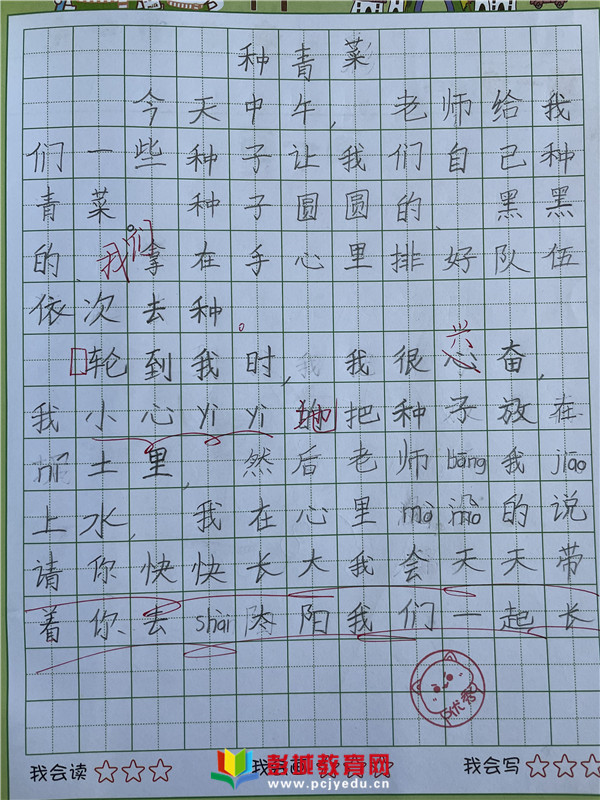 种青菜
今天中午，老师给我
们一些种子让我们自己种
青菜 种子圆圆的、黑黑
的、我们拿在手心里排好队伍
依次去种。
轮到我时，我很心奋，
兴
我小心yì yì地把种子放在
ní土里，然后老师bāng我jiāo
上水，我在心里mò mò的说
请你快快长大我会天天带
着你去shài太阳我们一起长
优秀
我会读☆☆☆ 我会画 我会写☆☆☆
彭城教育网
www.pcjyedu.cn